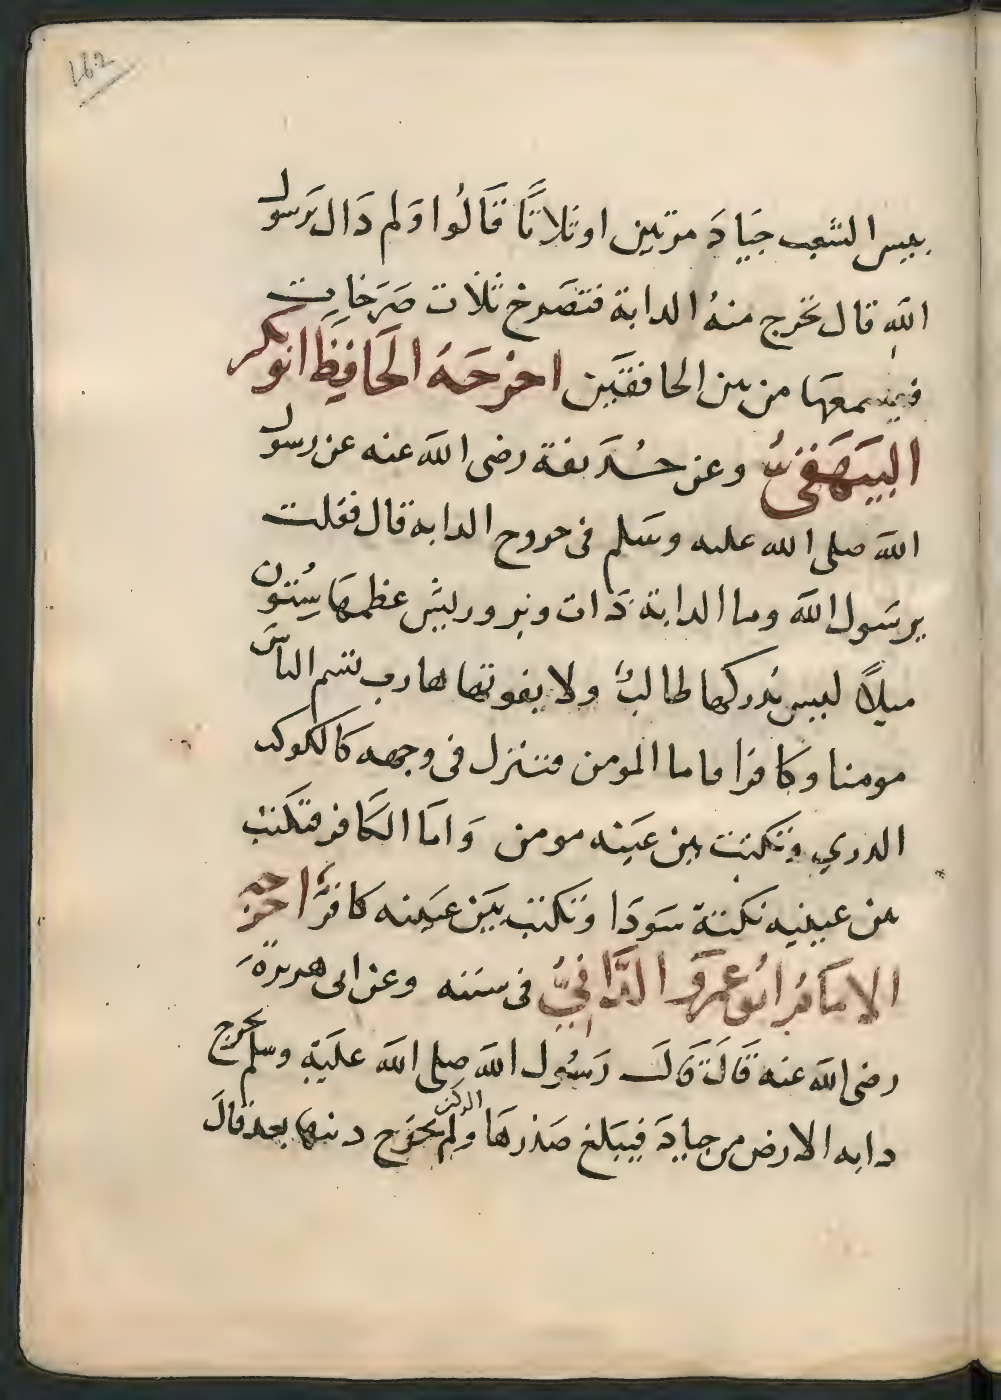 162
بيس الشعب جياد مرتين او ثلاثا قالوا ولم ذال يرسول
الله قال تخرج منه الدابة فتصرخ ثلاث صرخات
فيسمعها من بين الخافقين اخرجه الحافظ ابو بكر
البيهقي وعن حذيفة رضى الله عنه عن رسول
الله صلى الله عليه وسلم فى خروج الدابة قال فقلت
يرسول الله وما الدابة ذات وبر وريش عظمها ستون
ميلا ليس يدركها طالب ولا يفوتها هارب تسم الناس
مومنا وكافرا فاما المومن فتنزل فى وجهه كالكوكب
الدري وتكتب بين عينه مومن واما الكافر فتكتب
بين عينيه نكتة سودا وتكتب بين عينه كافر اخرجه
الامام ابو عمرو الدانى فى سننه وعن ابى هريرة
رضى الله عنه قالة قال رسول الله صلى الله عليه وسلم يخرج
دابه الارض من جياد فيبلغ صدرها الركن ولم يخرج ذنبها بعد قال